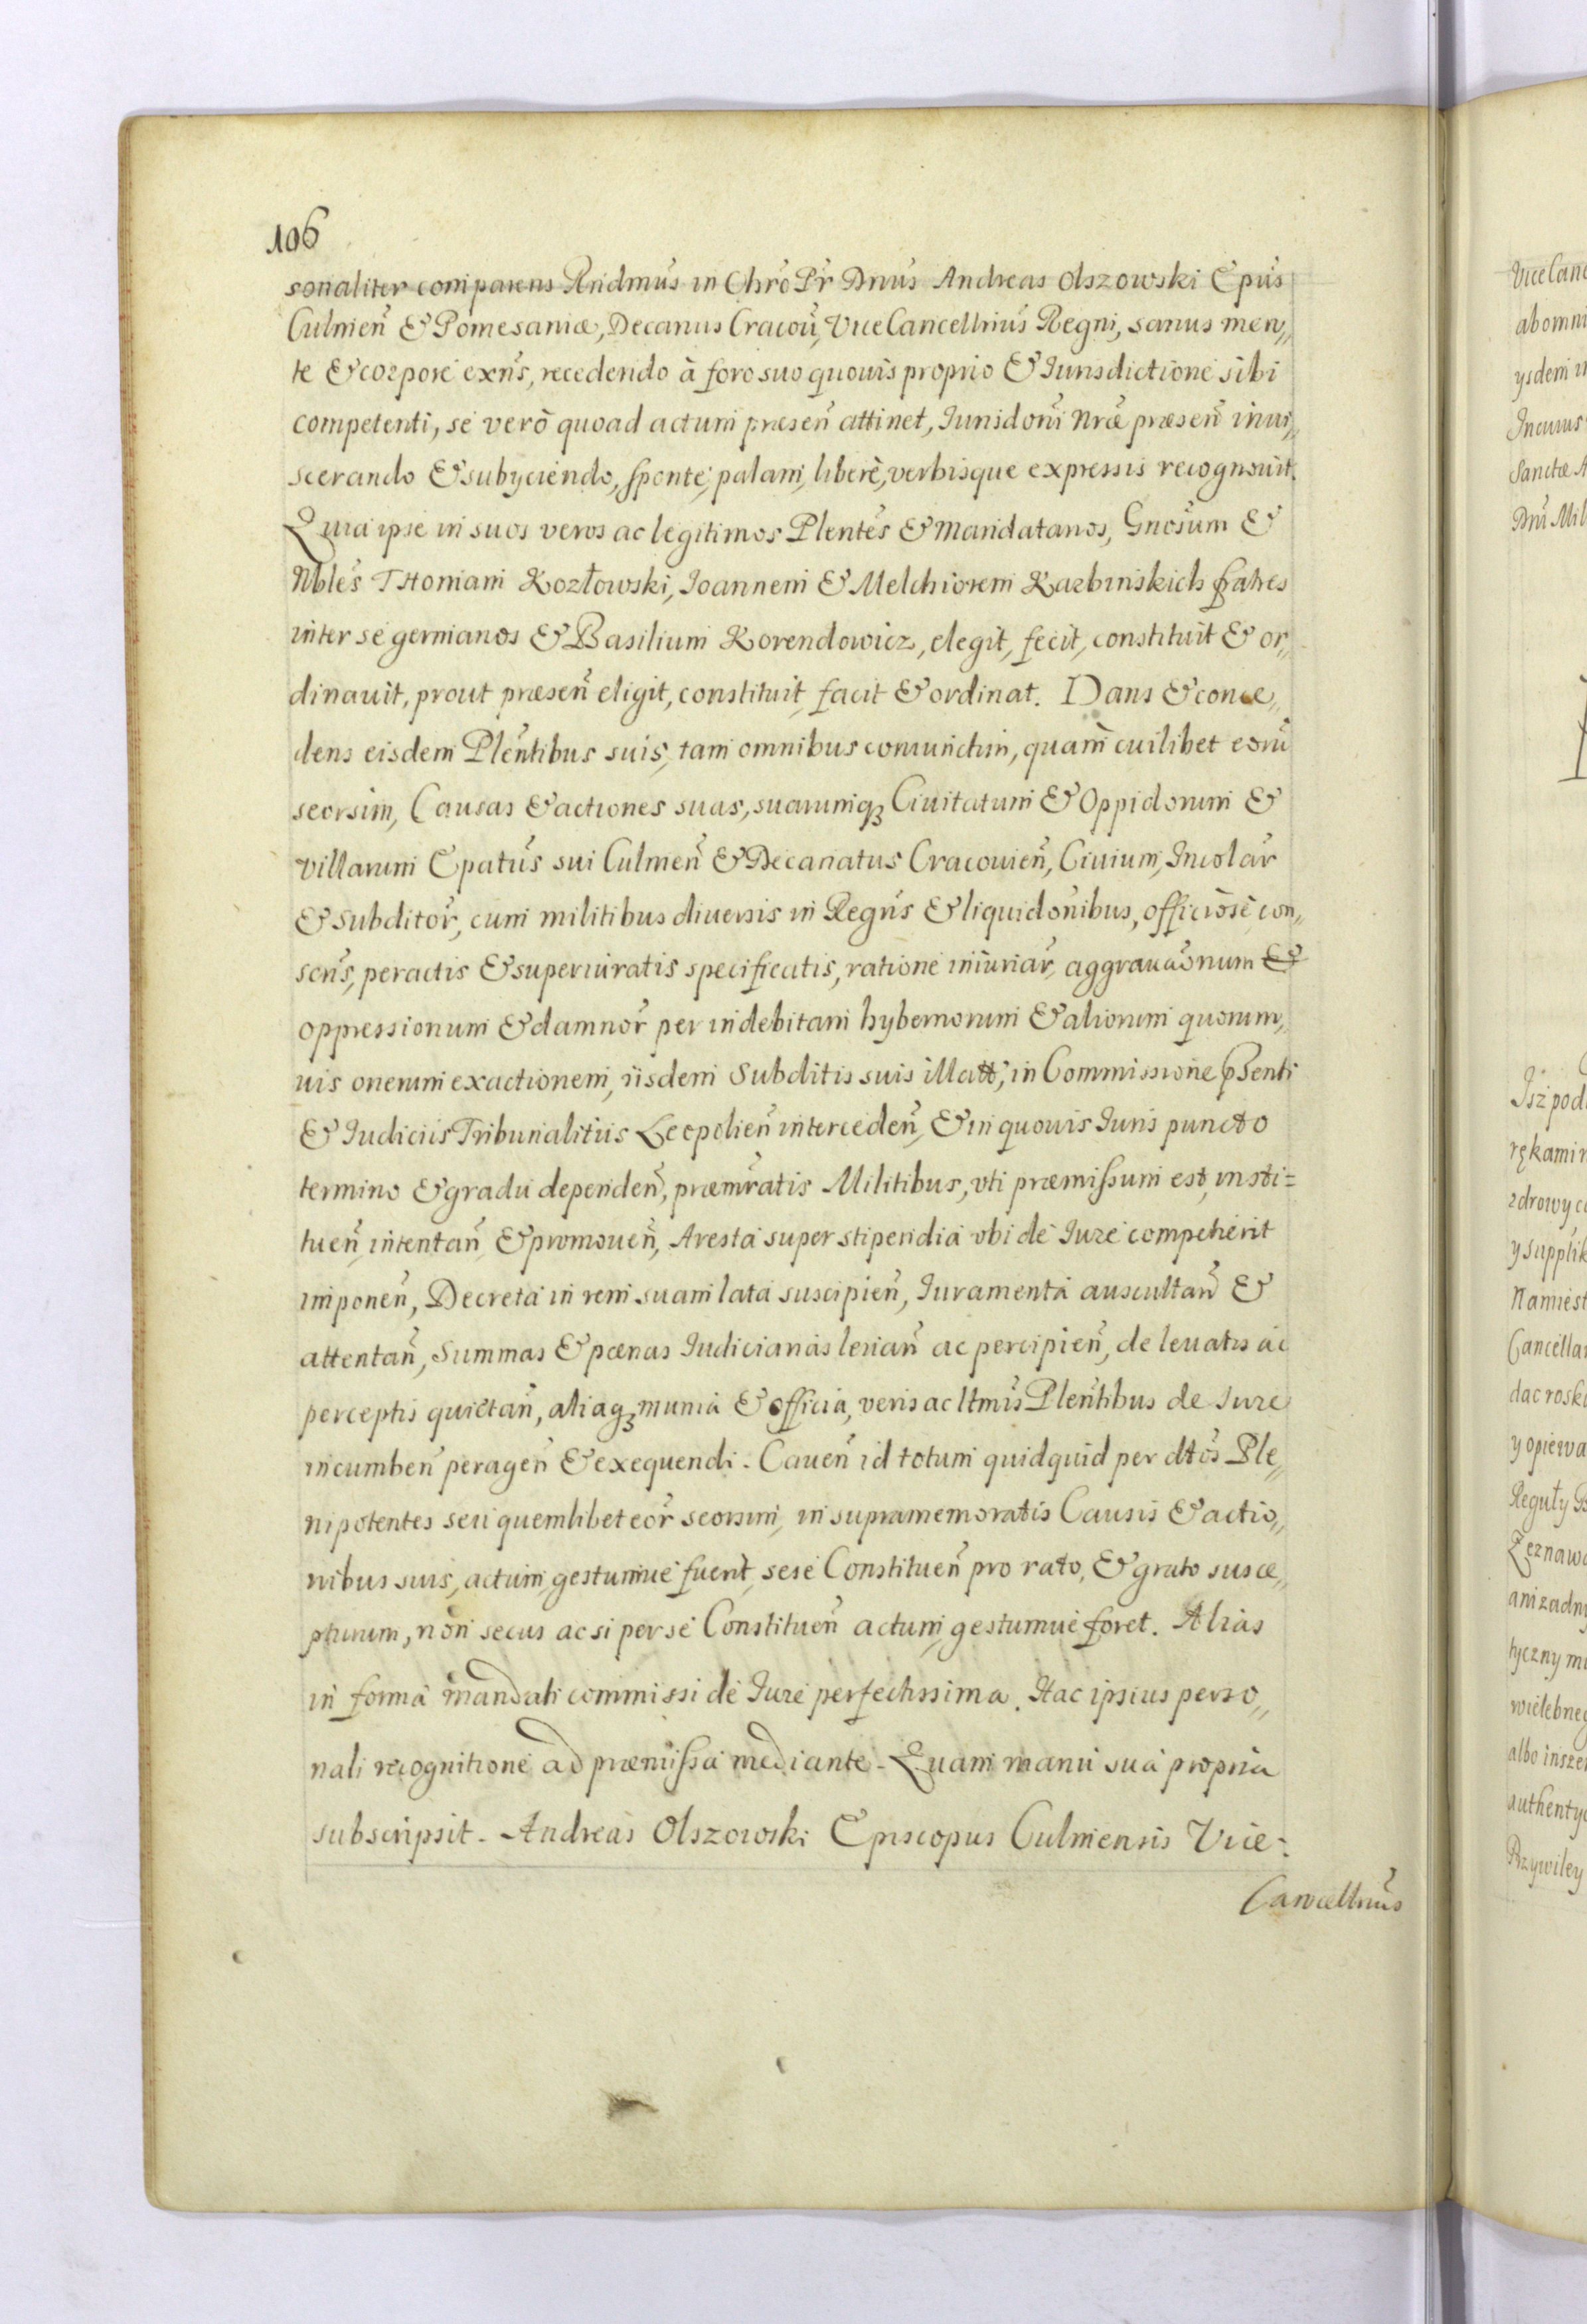 106
sonaliter comparens Rndmus in Chro Pr Dnus Andreas Olszowski Epus
Culmen & Pomesaniæ, Decanus Cracou, ViceCancellrius Regni, sanus men„
te & corpore exns, recedendo à foro suo quouis proprio & Iurisdictione sibi
competenti, se verò quoad actum præsen attinet, Iurisdoni nræ præsen inui„
scerando & subyciendo, sponte, palam, liberè, verbisque expressis recognouit.
Quia ipse in suos veros ac legitimos Plentes & Mandatarios, Gnosum &
Nbles THomam Kozłowski, Joannem & Melchiorem Karbinskich fratres
inter se germanos & Basilium Korendowicz, elegit, fecit, constituit & or„
dinauit, prout præsen eligit, constituit, facit & ordinat. Dans & conce„
dens eisdem Plentibus suis, tam omnibus coniunctim, quam cuilibet eoru
seorsim, Causas & actiones suas, suarumq3 Ciuitatum & Oppidorum &
villarum Epatus sui Culmen & Decanatus Cracouien, Ciuium, Incolar
& subditor, cum militibus diuersis in Regns & liquidonibus, officiose con„
scns, peractis & superiuratis specificatis, ratione iniuriar, aggrauaonum &
oppressionum & damnor per indebitam hybernorum & aliorum quorum„
uis onerum exactionem, iisdem Subditis suis illatt, in Commissione psenti
& Iudiciis Tribunalitiis Leopolien interceden, & in quouis Iuris puncto
termino & gradu dependen, præmratis Militibus, vti præmissum est, insti=
tuen, intentan & promouen, Aresta super stipendia vbi de Iure competierit
imponen, Decreta in rem suam lata suscipien, Iuramenta auscultan &
attentan, Summas & pœnas Iudiciarias leuan ac percipien, de leuatis ac
perceptis quietan, aliaq3 munia & officia, veris ac ltmis Plentibus de Iure
incumben peragen & exequendi. Cauen id totum quidquid per dtos Ple„
nipotentes seu quemlibet eor seorsim, in supramemoratis Causis & actio„
nibus suis, actum, gestumue fuerit, sese Constituen pro rato, & grato susce„
pturum, non secus ac si per se Constituen actum, gestumue foret. Alias
in forma mandati commissi de Iure perfectissima. Hac ipsius perso„
nali recognitione ad præmissa mediante. Quam manu sua propria
subscripsit. Andreas Olszowski Episcopus Culmensis Vice:
Cancellrius